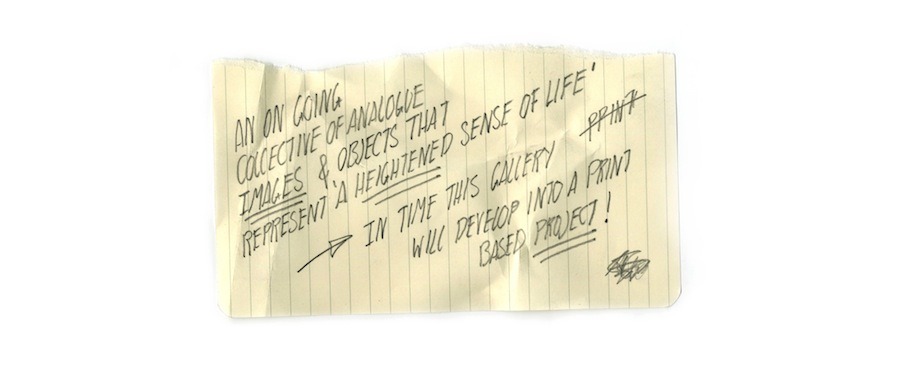 AN ON GOING
COLLECTIVE OF ANALOGUE
IMAGES & OBJECTS THAT
REPRESENT 'A HEIGHTENED SENSE OF LIFE'
PRINT
→ IN TIME THIS GALLERY
WILL DEVELOP INTO A PRINT
BASED PROJECT!